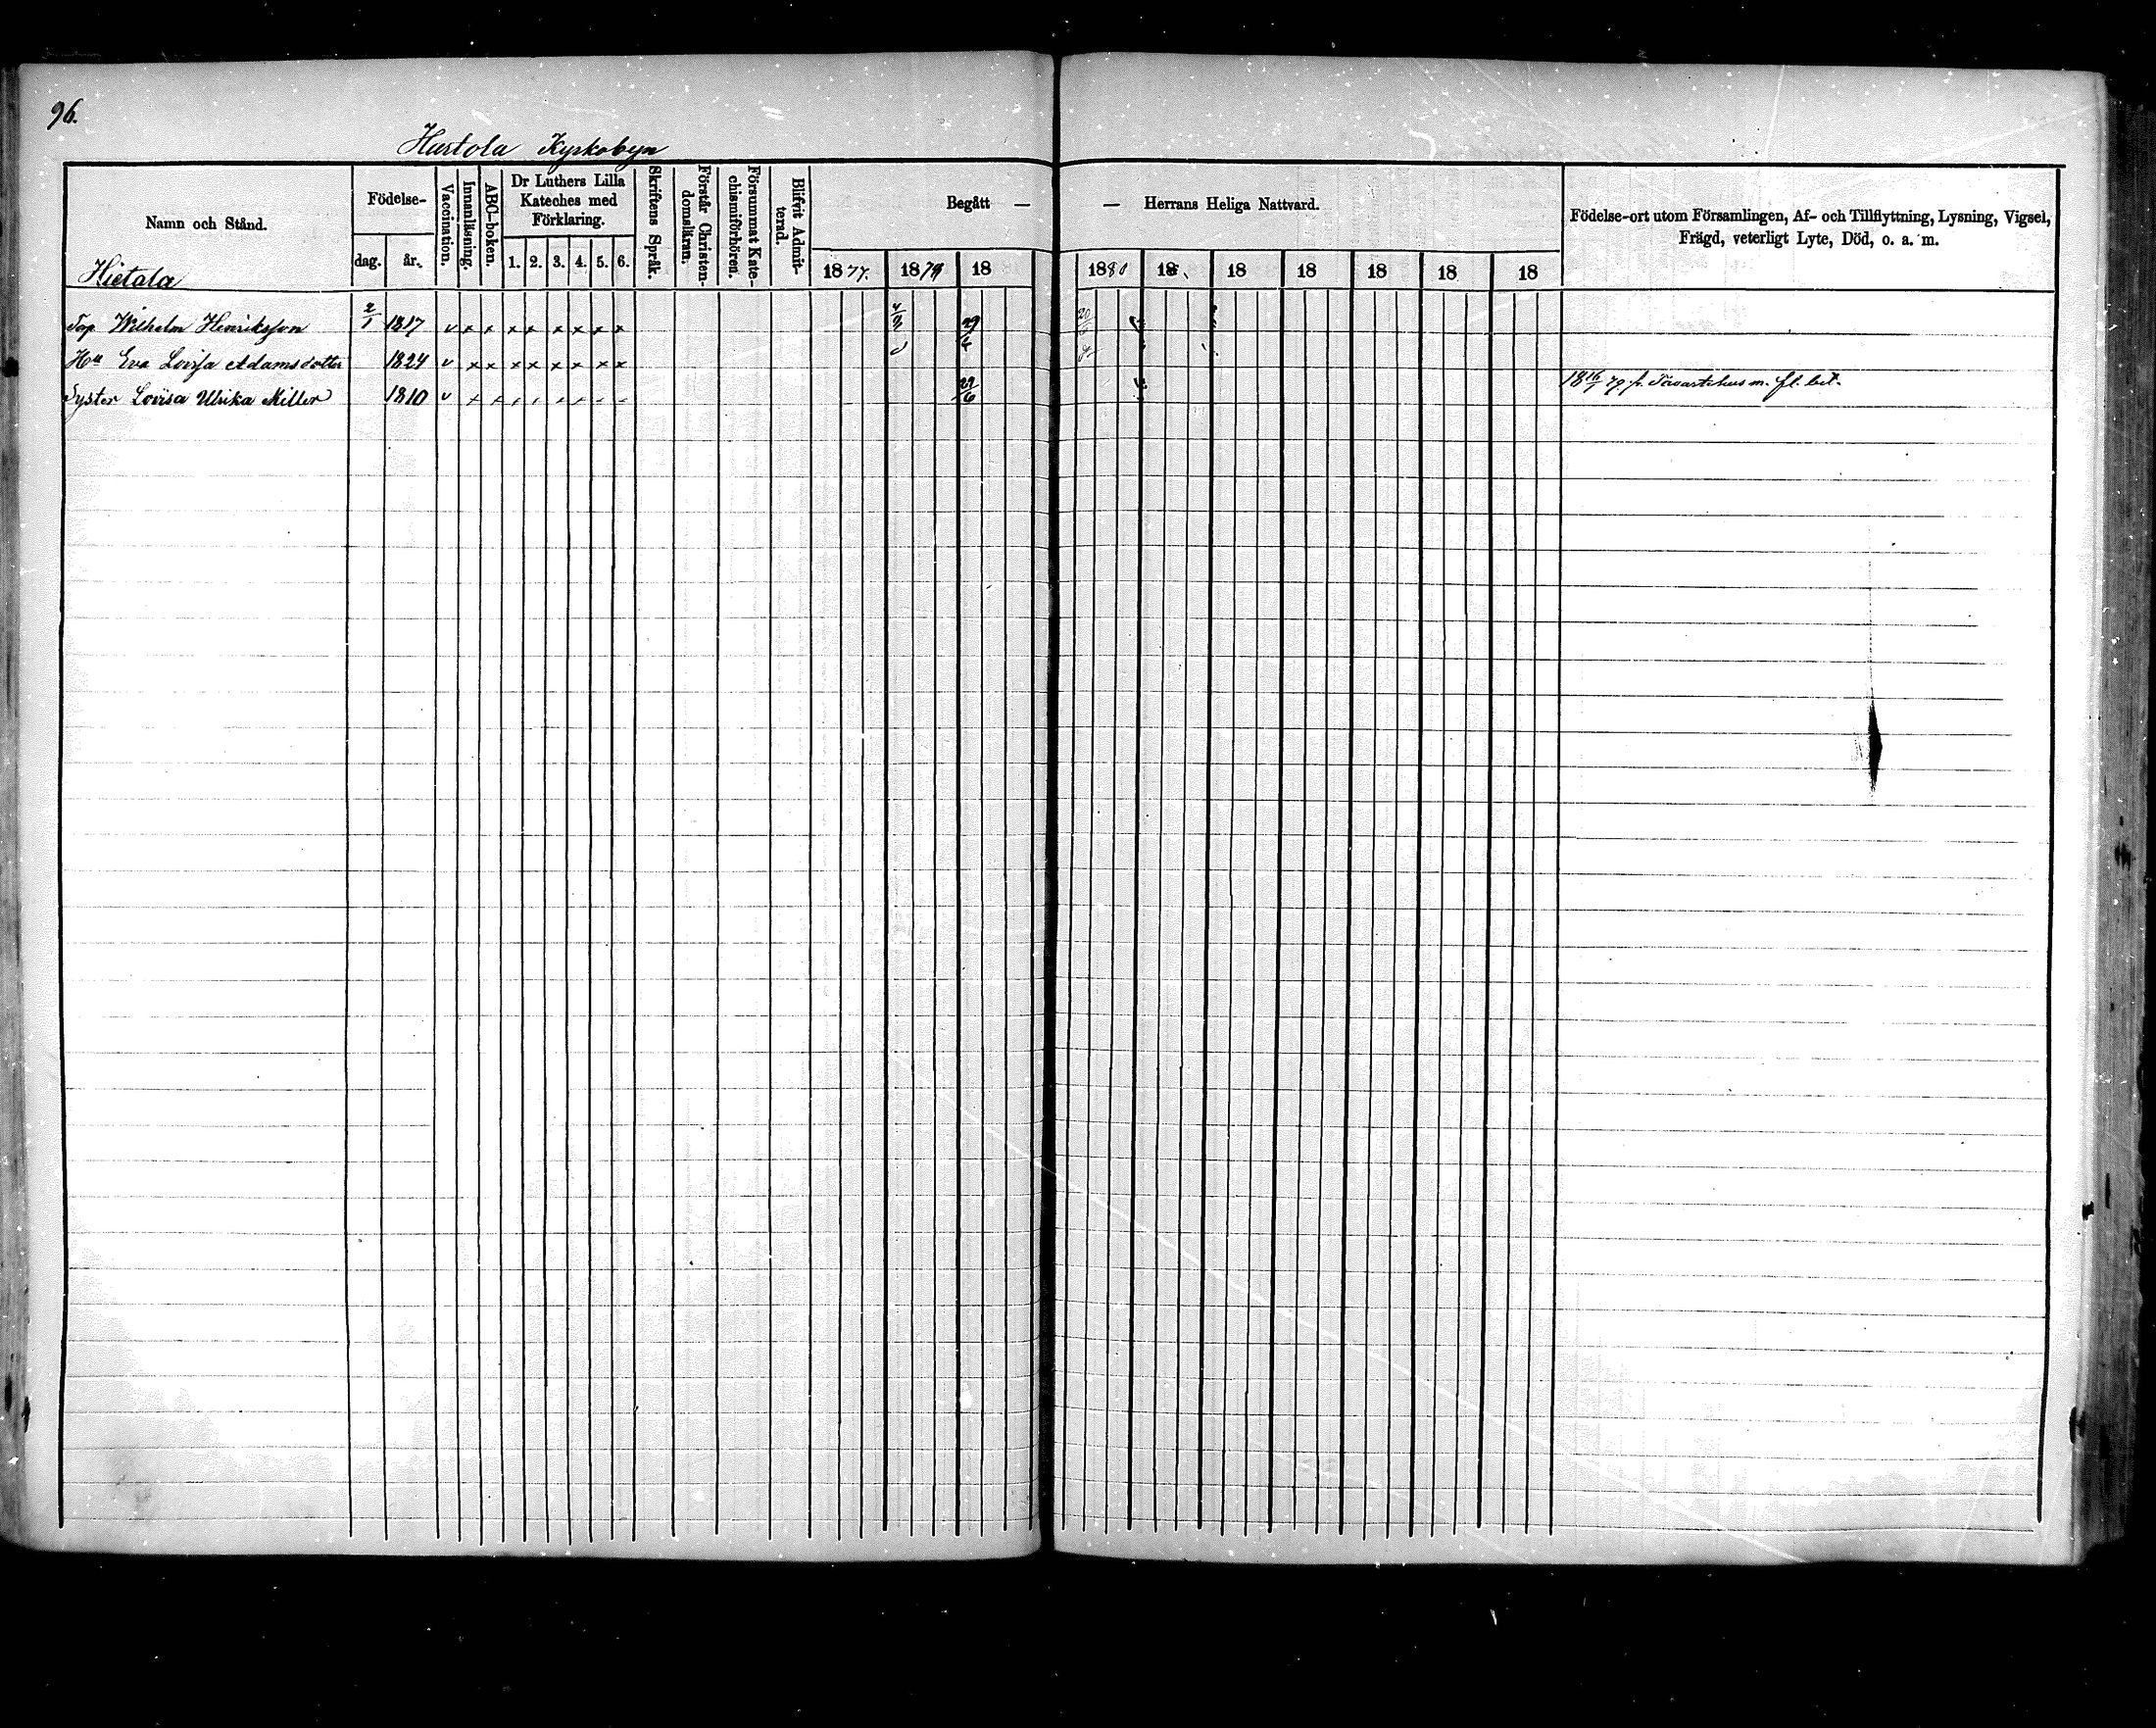 96.
Hurtola Kyrkobyn
Namn och Stånd. Födelse- Vaccination. Innanläsning. ABC-boken. Dr Luthers Lilla Kateches med Förklaring. Skriftens Språk. Förstår Christendomsläran. Försummat Katechismiförhören. Blifvit Admitterad. Begått — — Herrans Heliga Nattvard. Födelse-ort utom Församlingen, Af- och Tillflyttning, Lysning, Vigsel, Frägd, veterligt Lyte, Död, o. a. m.
dag. år. 1. 2. 3. 4. 5. 6. 1877. 1879 18 1880 18 18 18 18 18 18
Hietala
Wilhelm Henriksson 2/1 1817 v x x x x x x x x
Hu Eva Lovisa Adamsdotter 1824 v x x x x x x x x
Syster Lovisa Ulrika Miller 1810 v 29/6 18 16/1 79 fr. Tavastehus m. fl. bet.